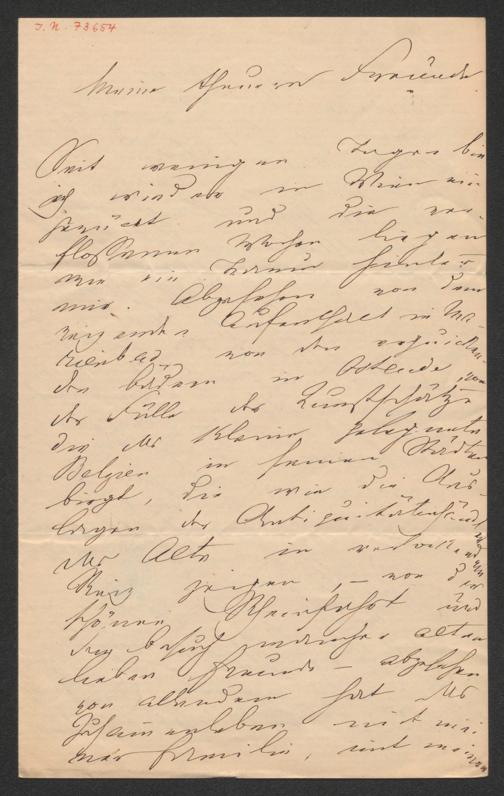 J. N. 73654
Meine theueren Freunde
Seit wenigen Tagen bin
ich wieder in Wien ein
gerückt und die ver
flossenen Wochen liegen
wie ein Traum hinter
mir. Abgesehen von dem
reizenden Aufenthalt in Ma-
rienbad, von den erquicken-
den Bädern in Ostende, von
der Fülle der Kunstschätze
die das kleine gesegnete
Belgien in seinen Städten
birgt, die wie die Aus-
lagen der Antiquitätenhändler
das Alte in
Reiz zeigen, – von der
schönen Rheinfahrt und
dem Besuch mancher alten
lieben Freunde – abgesehen
von alledem hat das
Zusammenleben mit mei
ner Familie, mit meinen